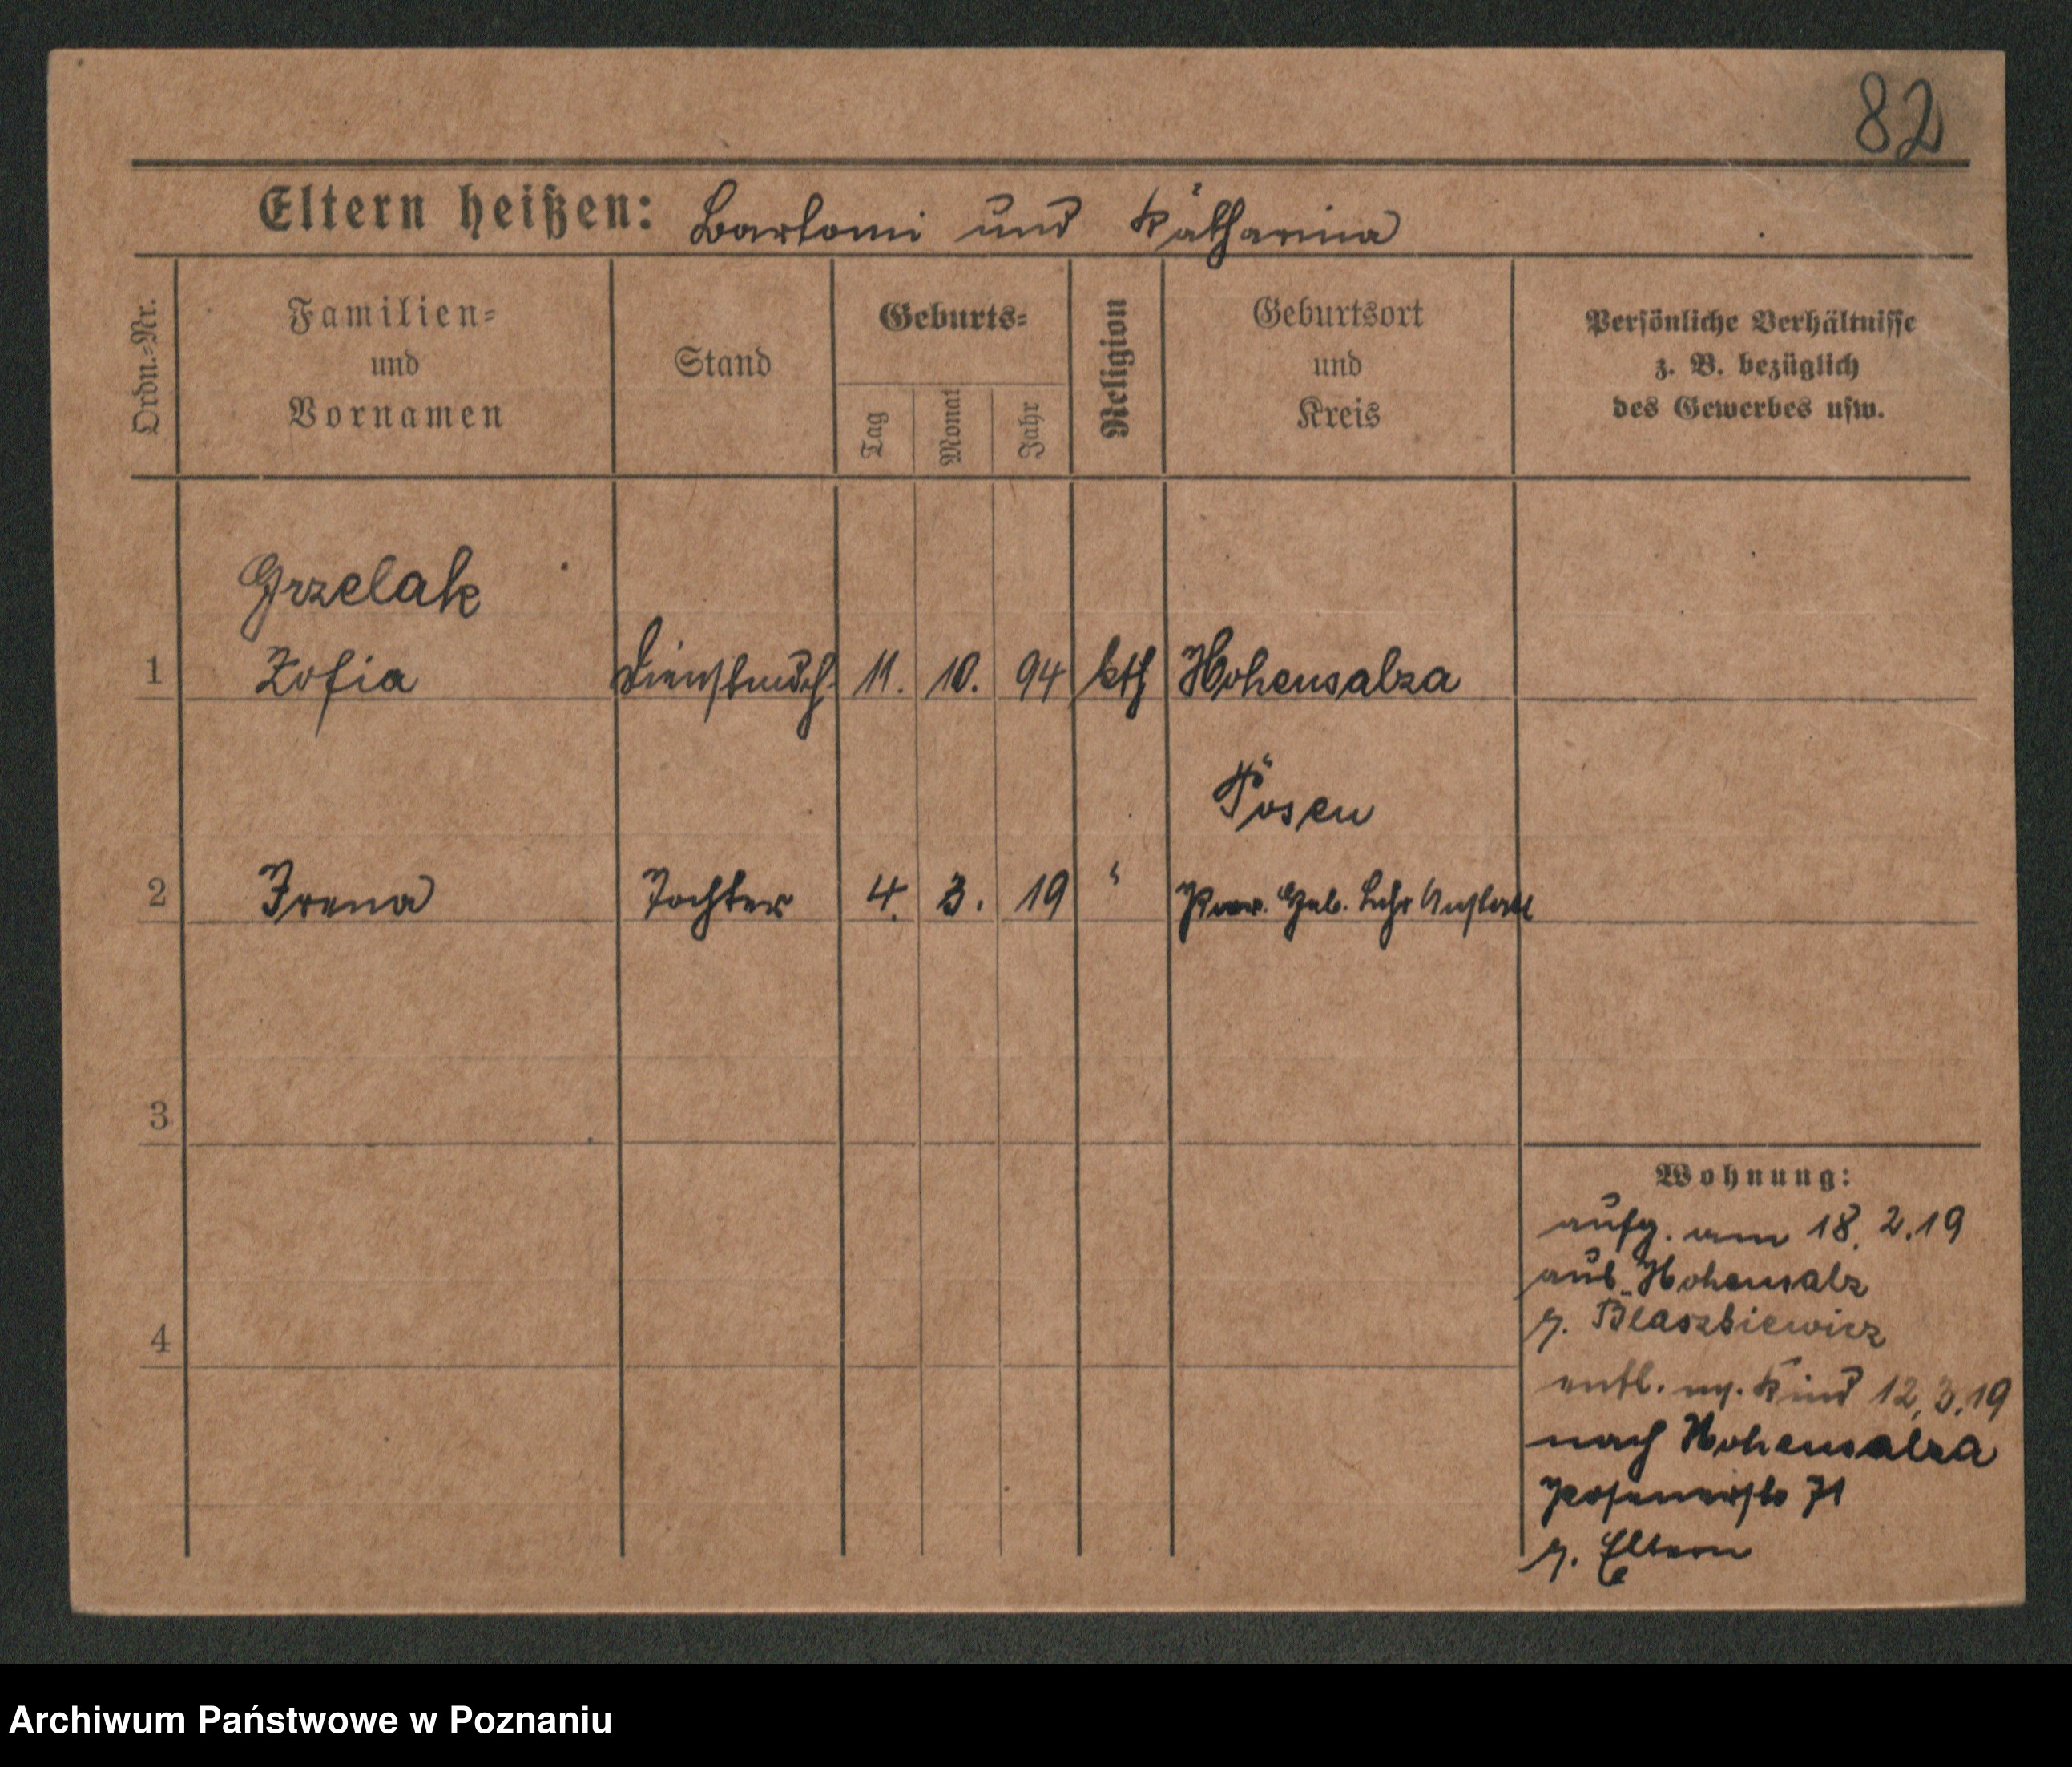 82
Eltern heißen: Bartomi und Katharina
Ordn.-Nr.
Familien-
und
Vornamen
Stand
Geburts-
Tag
Monat
Jahr
Religion
Geburtsort
und
Kreis
Persönliche Verhältnisse
z. B. bezüglich
des Gewerbes usw.
Grzelak
1 Zofia Dienstmdch. 11. 10. 94 kth Hohensalza
Posen
2 Irena Tochter 4. 3. 19 " Prov. Heb. Lehr Anstalt
3
4
Wohnung:
aufg. am 18. 2. 19
aus Hohensalz
z. Blaszkiewicz
entl. m. Kind 12. 3. 19
nach Hohensalza
Posenerstr 71
z. Eltern
Archiwum Państwowe w Poznaniu